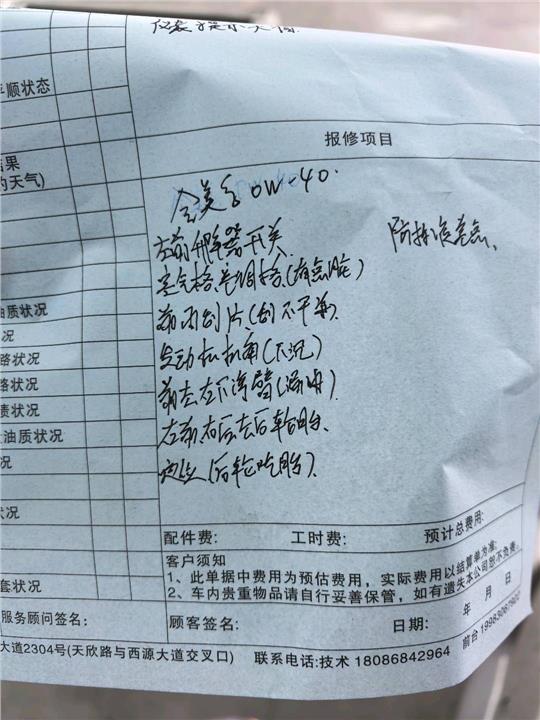 仪表提示大灯
平顺状态
报修项目
结果
的天气)
全美合 0W-40.
左前升降器开关 防撞
空气格.空调格.(有点脏)
前雨刮片(刮不干净)
发动机机角(下沉)
油质状况
况
前左.右下弯臂(漏油)
路状况
路状况
左前右后左后轮胎.
债状况
油质状况
(后轮吃胎).
况
状况
配件费: 工时费: 预计总费用:
客户须知
1、此单据中费用为预估费用，实际费用以结算单为准;
2、车内贵重物品请自行妥善保管，如有遗失本公司恕不负责。
套状况
服务顾问签名: 顾客签名: 日期: 年 月 日
大道2304号(天欣路与西源大道交叉口) 联系电话:技术 18086842964 前台